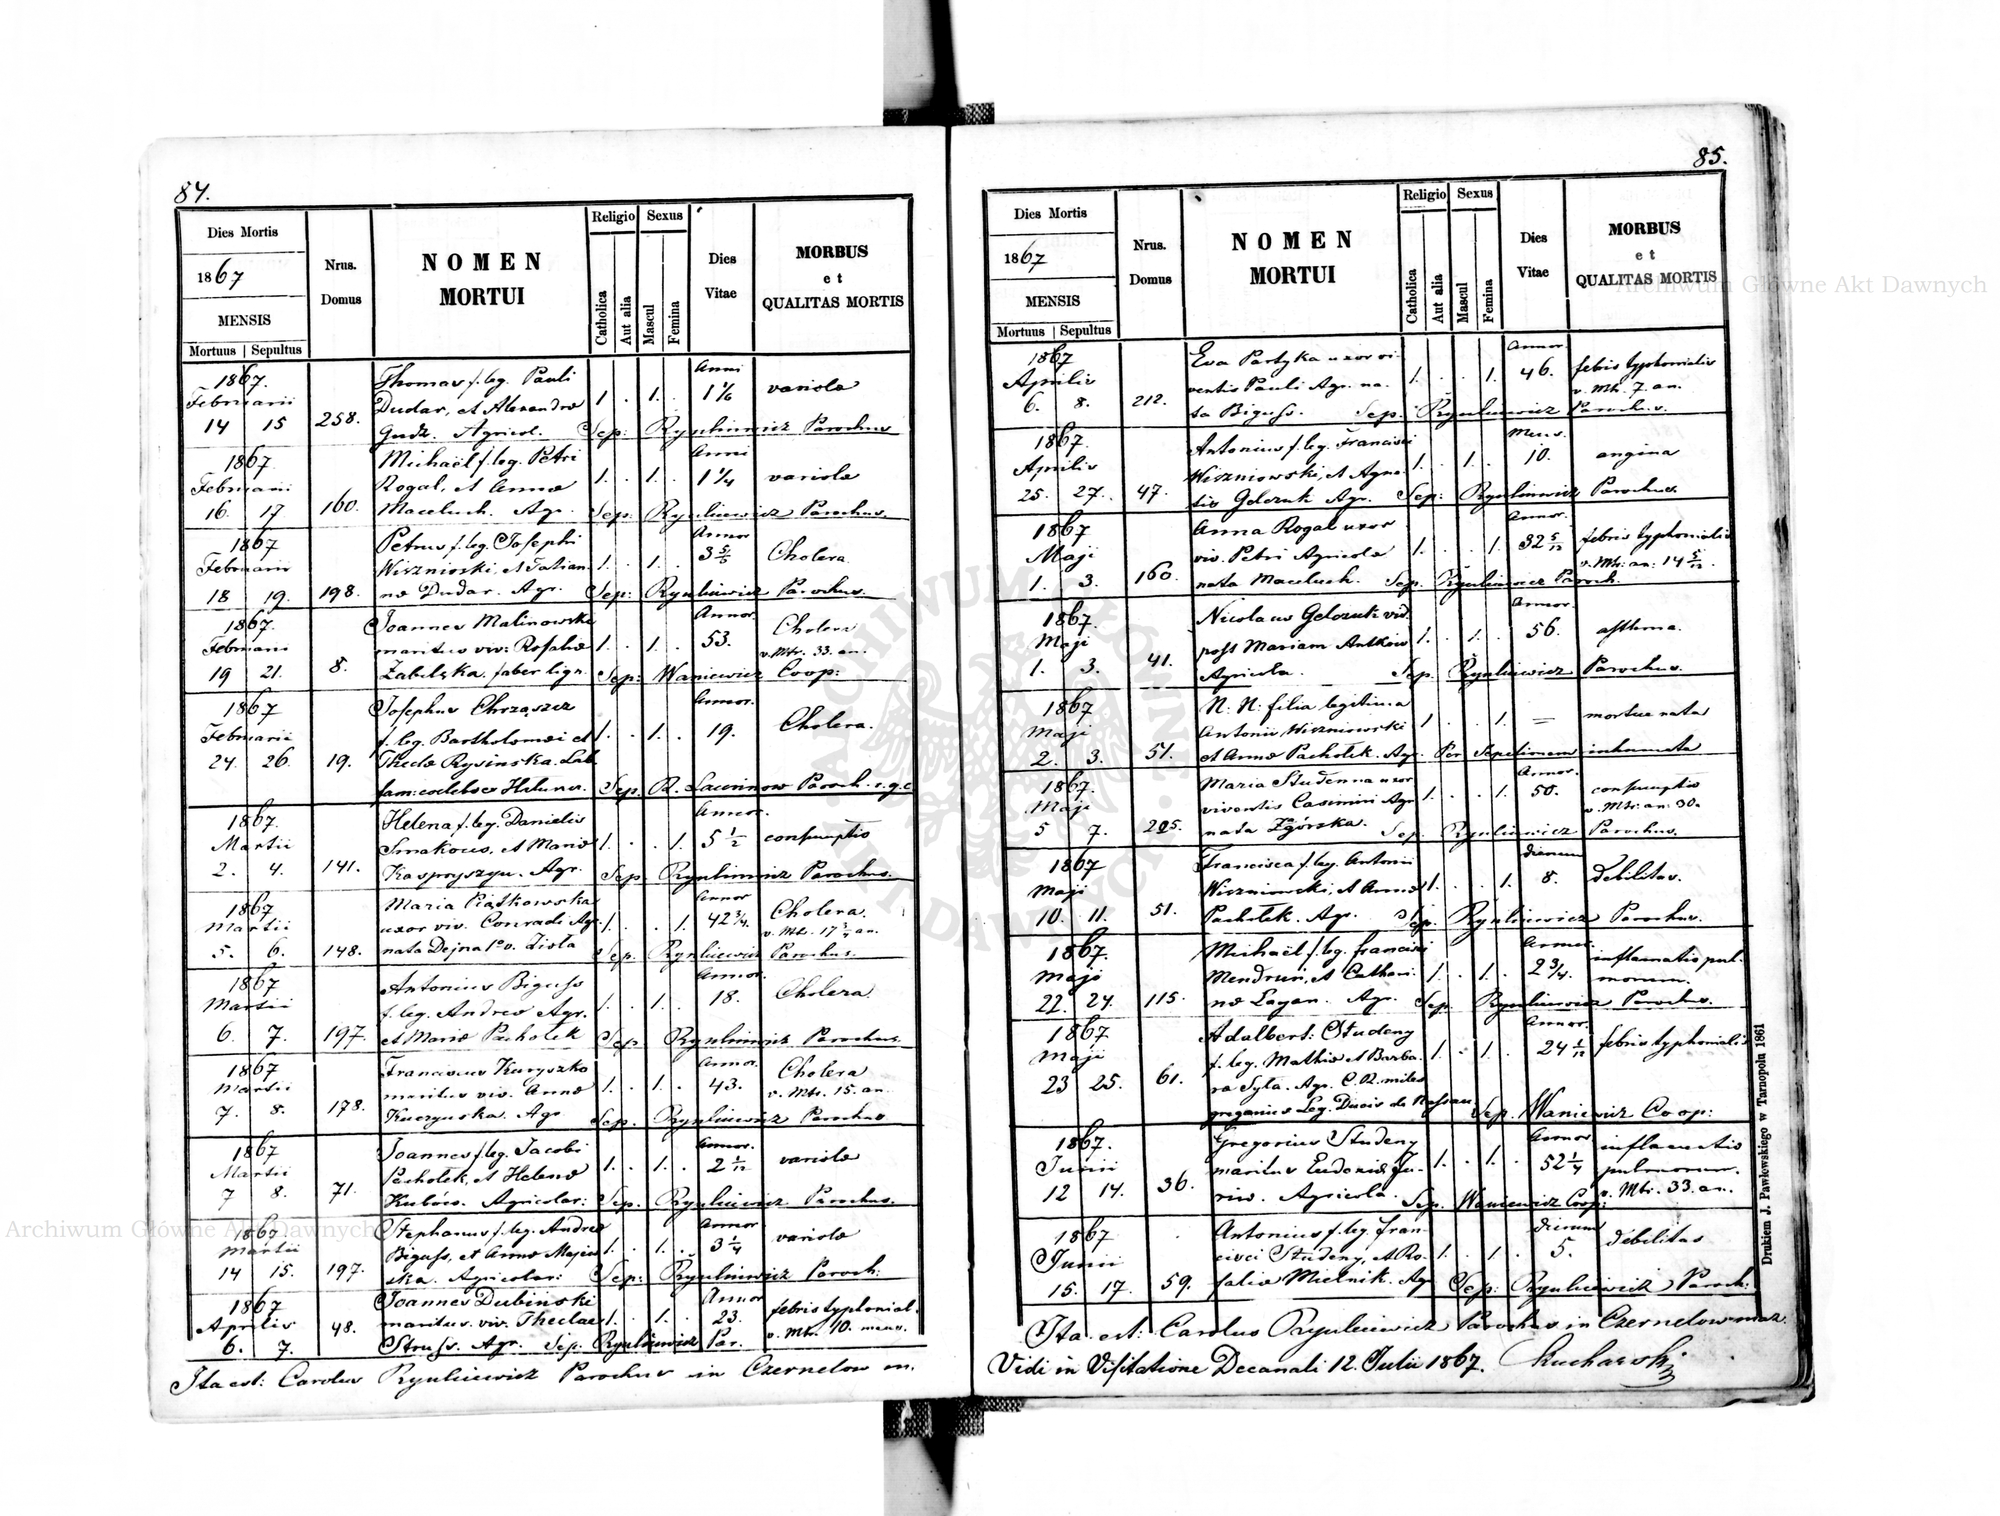 84.
Dies Mortis
1867
MENSIS
Mortuus | Sepultus
Nrus.
Domus
NOMEN
MORTUI
Religio
Catholica
Aut alia
Sexus
Mascul
Femina
Dies
Vitae
MORBUS
et
QUALITAS MORTIS
1867. Thomas f. leg. Pauli Anni
Februarii Dudar, et Alexandrae 1. . 1. . 1 1/6 variola
14 15 258. Gudz. Agricol. Sep: Rynkiewicz Parochus
1867 Michaël f. leg. Petri Anni
Februarii Rogal, et Annae 1. . 1. . 1 1/4 variola
16. 17 160. Maceluch. Agr. Sep: Rynkiewicz Parochus.
1867 Petrus f. leg. Josephi Annor
Februarii Wisznioski, et Tatian- 1. . 1. . Cholera
18 19. 198. nae Dudar. Agr. Sep: Rynkiewicz Parochus.
1867. Joannes Malinowski Annor. Cholera
Februarii maritus viv: Rosaliae 1. . 1. . 53. v. Mtr. 33. an.
19 21. 8. Zabilska. faber lign. Sep: Waniewicz Coop:
1867 Josephus Chrząszcz Annor.
Februarii f. leg. Bartholomaei et 1. . 1. . 19. Cholera.
24. 26. 19. Theclae Rysinska. Lab.
fam: caelebs Sep. Paroch. r. g. c.
1867. Helena f. leg. Danielis Annor.
Martii Smakous, et Mariae 1. . . 1. 5 1/2 consumptio
2. 4. 141. Kaspryszyn. Agr. Sep. Rynkiewicz Parochus.
1867 Maria Piątkowska Annor Cholera.
Martii uxor viv. Conradi Agr. 1. . . 1. 42 3/4. v. Mtr. 17 3/4 an.
5. 6. 148. nata Dejna 1o v. Zioła Sep. Rynkiewicz Parochus.
1867 Antonius Biguss Annor.
Martii f. leg. Andreae Agr. 1. . 1. . 18. Cholera
6. 7. 197. et Mariae Pachołek Sep. Rynkiewicz Parochus.
1867 Franciscus Kuryszko Annor. Cholera
Martii maritus viv. Annae 1. . 1. . 43. v. Mtr. 15. an.
7. 8. 178. Kuczynska. Agr. Sep. Rynkiewicz Parochus
1867 Joannes f. leg. Jacobi Annor.
Martii Pachołek, et Helenae 1. . 1. . 2 1/12 variola
7 8. 71. Kubów. Agricolar: Sep. Rynkiewicz Parochus.
1867 Stephanus f. leg. Andreae Annor
Martii Biguss, et Annae 1. . 1. . 3 1/4 variola
14 15. 197. ska. Agricolar: Sep: Rynkiewicz Paroch:
1867 Joannes Dubinski Annor febris typhonial.
Aprilis maritus. viv. Theclae 1. . 1. . 23. v. Mtr. 10. mens.
6. 7. 48. Struss. Agr. Sep. Rynkiewicz Par.
Ita est: Carolus Rynkiewicz Parochus in Czernelow m.
85.
Dies Mortis
1867
MENSIS
Mortuus | Sepultus
Nrus.
Domus
NOMEN
MORTUI
Religio
Catholica
Aut alia
Sexus
Mascul
Femina
Dies
Vitae
MORBUS
et
QUALITAS MORTIS
1867 Eva Partyka uxor vi- Annor.
Aprilis ventis Pauli Agr. na- 1. . . 1. 46. febris typhonialis
6. 8. 212. ta Biguss. Sep. Rynkiewicz Parochus. v. Mtr. 7. an.
1867. Antonius f. leg. Francisci Mens.
Aprilis Wiszniowski, et Agne- 1. . 1. . 10. angina
25. 27. 47. tis Gelczuk Agr. Sep: Rynkiewicz Parochus.
1867 Anna Rogal uxor Annor.
Maji viv. Petri Agricolae 1. . . 1. 32 5/12 febris typhonialis
1. 3. 160. nata Maceluch. Sep. Rynkiewicz Paroch. v. Mtr. an: 14 5/12.
1867. Nicolaus Gelczuk vid. Annor.
Maji post Mariam Antków 1. . 1. . 56. asthma.
1. 3. 41. Agricola. Sep. Rynkiewicz Parochus.
1867 N. N. filia legitima
Maji Antonii Wiszniowski 1 . . 1. = mortua nata
2. 3. 51. et Annae Pachołek. Agr. Per Sepelionem inhumata
1867. Maria Studenna uxor Annor.
Maji viventis Casimiri Agr. 1. . . 1. 50. consumptio
5 7. 205. nata Zgórska. Sep. Rynkiewicz Parochus. v. Mtr. an. 30.
1867 Francisca f. leg. Antonii dierum
Maji Wiszniowski, et Annae 1. . . 1. 8. Debilitas.
10. 11. 51. Pachołek. Agr. Sep. Rynkiewicz Parochus.
1867. Michaël f. leg. Francisci Annor.
Maji Mendrun, et Cathari- 1. . 1. . 2 3/4. inflamatio pul-
22. 24. 115. nae Łagan. Agr. Sep. Rynkiewicz Parochus. monum.
1867 Adalbert: Studeny Annor.
Maji f. leg. Mathiae et Barba- 1. . 1. . 24 1/12 febris typhonialis
23 25. 61. ra Syta. Agr. C. R. miles
gregarius Leg. Ducis de Nassau. Sep. Waniewicz Coop:
1867. Gregorius Studeny Annor inflamatio
Junii maritus Eudoniae Ju- 1. . 1. . 52 1/4 pulmonum.
12 14. 36. riw. Agricola. Sep. Waniewicz Coop: v. Mtr. 33. an.
1867 Antonius f. leg. Fran- dierum
Junii cisci Studeny, et Ro- 1. . 1. . 5. debilitas
15. 17. 59. saliae Mielnik. Agr Sep: Rynkiewicz Paroch:
Ita est: Carolus Rynkiewicz Parochus in Czernelow maz.
Vidi in Visitatione Decanali 12. Julii 1867. Kucharski
Drukiem J. Pawłowskiego w Tarnopolu 1861
Archiwum Główne Akt Dawnych
Archiwum Główne Akt Dawnych
ARCHIWUM GŁÓWNE AKT DAWNYCH